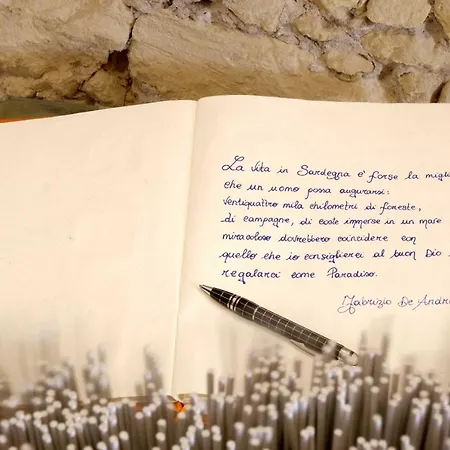 La vita in Sardegna e' forse la migli
che un uomo possa augurarsi:
ventiquattro mila chilometri di foreste,
di campagne, di coste immerse in un mare
miracoloso dovrebbero coincidere con
quello che io consiglierei al buon Dio
regalarci come Paradiso.
Fabrizio De Andr